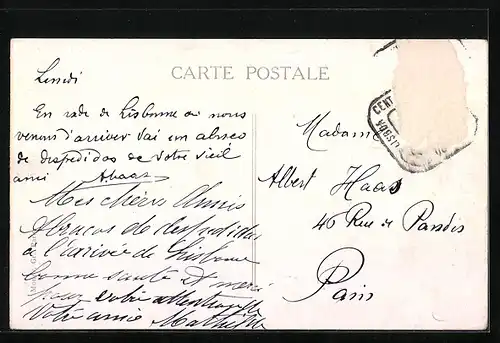 CARTE POSTALE
Lundi
En rade de Lisbonne ou nous
venons d'arriver vai um abraço
de despedidas de votre vieil
ami
Mes chères Amis
Abraços de despedidas
à l'arrivée de Lisbonne
bonne santé et merci
pour votre
Votre amie Mathilde
Madame
Albert Haas
46 Rue de Paradis
Paris
CENT
LISBOA